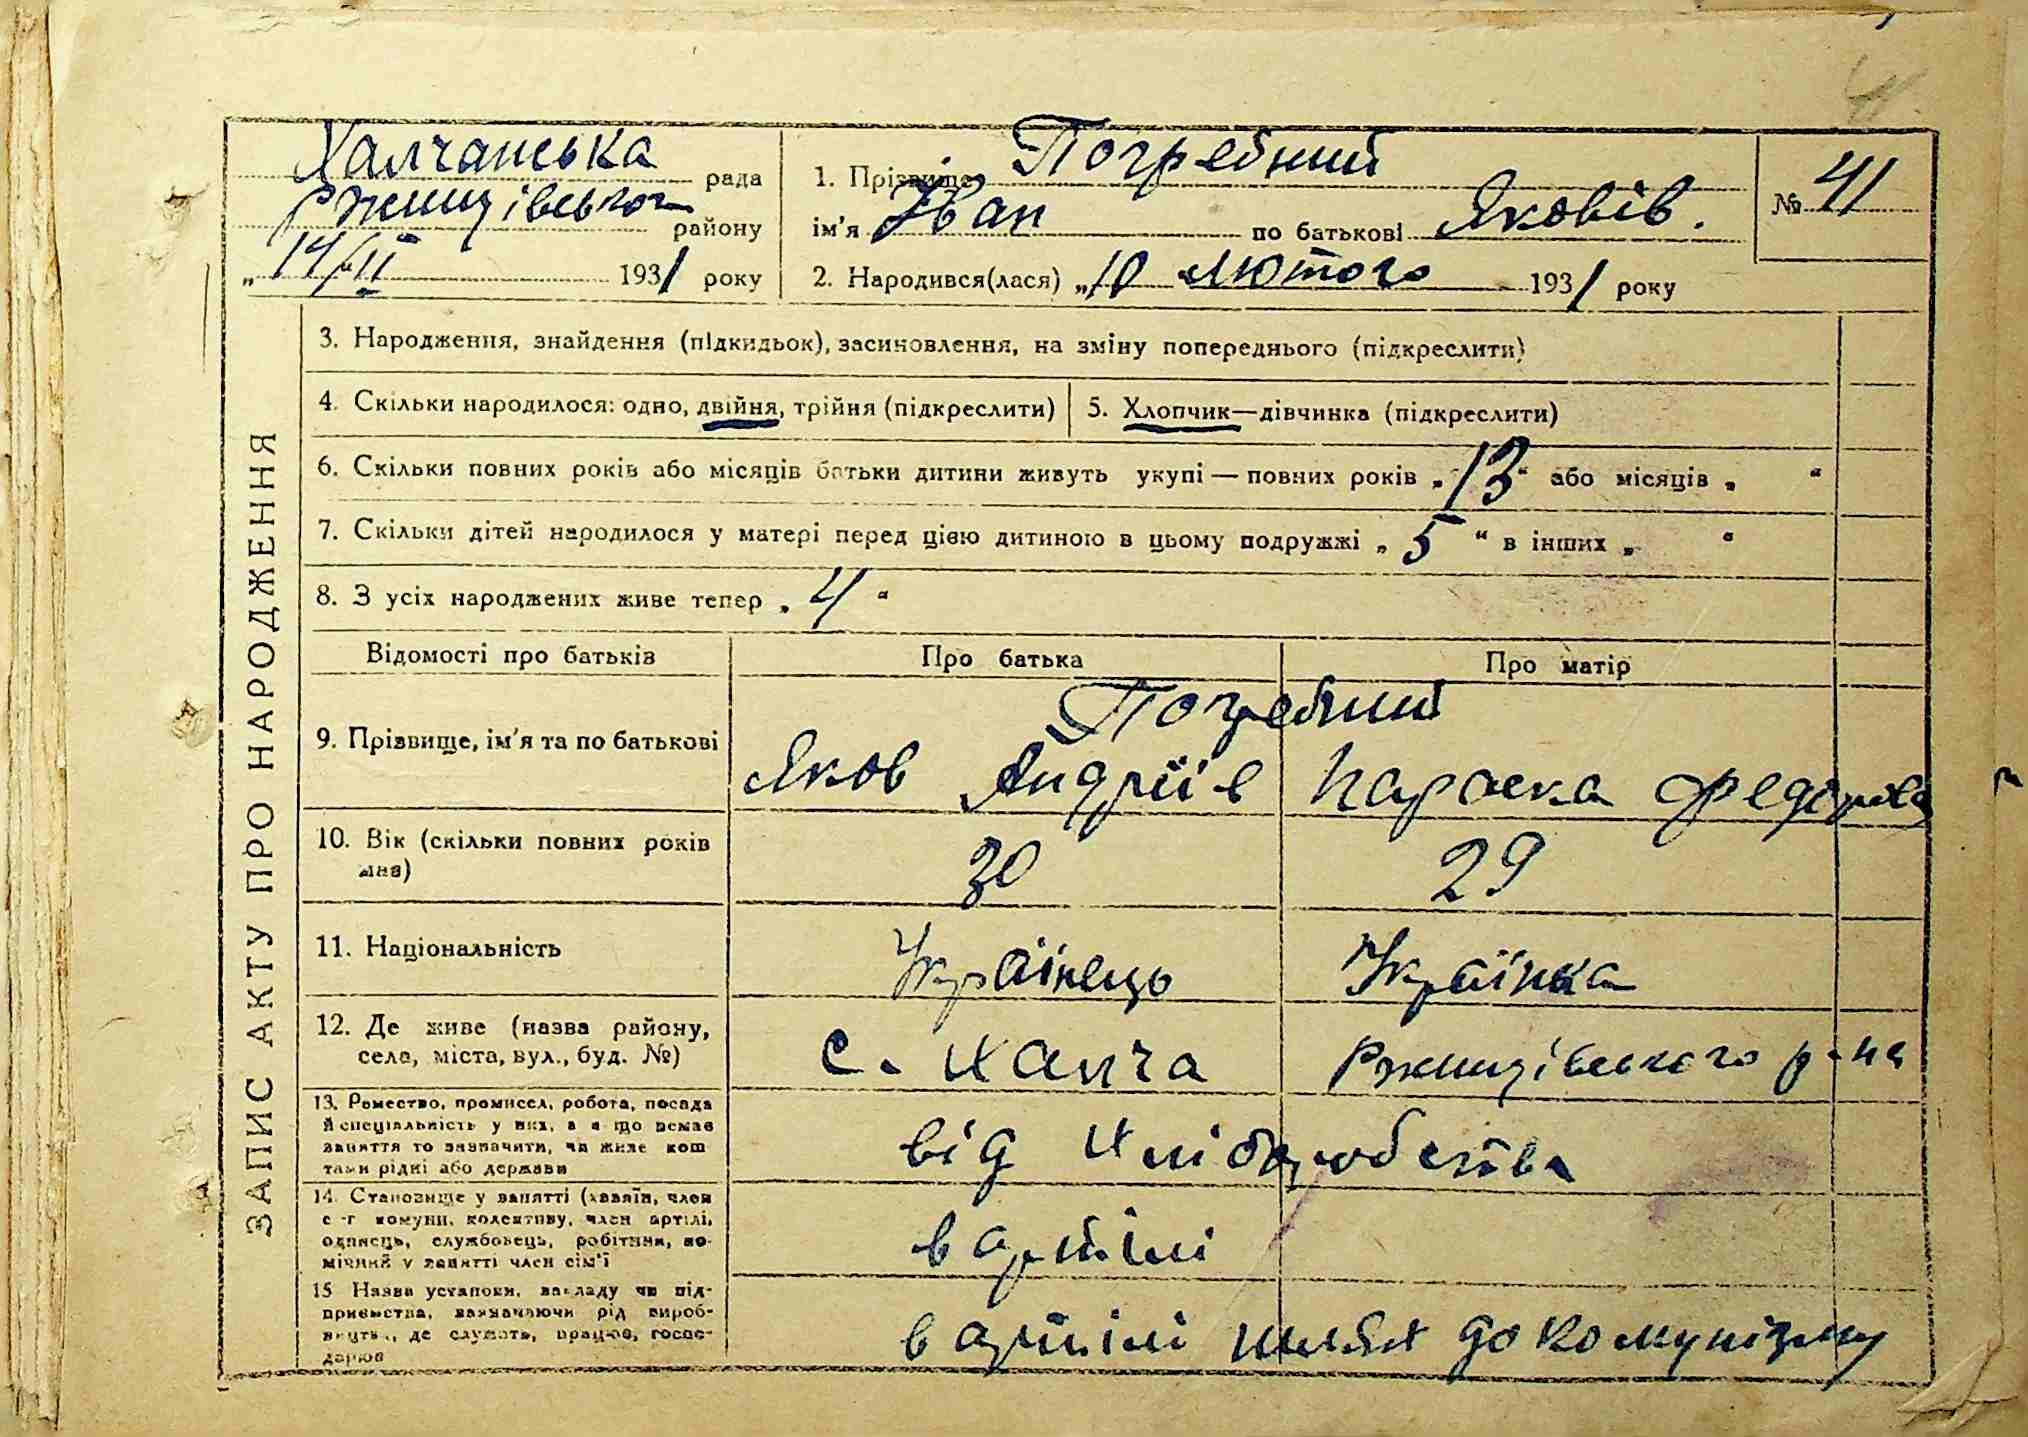 Халчанська рада
Ржищівського району
„14/II 1931 року
1. Прізвище Погребний
ім'я Іван по батькові Яковів.
2. Народився(лася) „10 лютого 1931 року
№ 41
ЗАПИС АКТУ ПРО НАРОДЖЕННЯ
3. Народження, знайдення (підкидьок), засиновлення, на зміну попереднього (підкреслити)
4. Скільки народилося: одно, двійня, трійня (підкреслити)
5. Хлопчик—дівчинка (підкреслити)
6. Скільки повних років або місяців батьки дитини живуть укупі — повних років „13“ або місяців „ “
7. Скільки дітей народилося у матері перед цією дитиною в цьому подружжі „5“ в інших „ “
8. З усіх народжених живе тепер „4“
Відомості про батьків Про батька Про матір
9. Прізвище, ім'я та по батькові
Погребний
Яков Андріїв Параска Федорова
10. Вік (скільки повних років
має)
30 29
11. Національність Українець Українка
12. Де живе (назва району,
село, міста, вул., буд. №)
с. Халча Ржищівського р-на
13. Ремество, промисел, робота, посада
й спеціальність у них, а якщо немає
заняття то зазначити, чи живе кош
тами рідні або держави
від хліборобства
14. Становище у занятті (хазяїн, член
с-г комуни, колективу, член артілі,
одинець, службовець, робітник, по-
мічний у занятті член сім'ї
в артілі
15 Назва установи, закладу чи під-
приємства, зазначаючи рід вироб-
ництва, де служить, працює, госпо-
дарює
в артілі шлях до комунізму